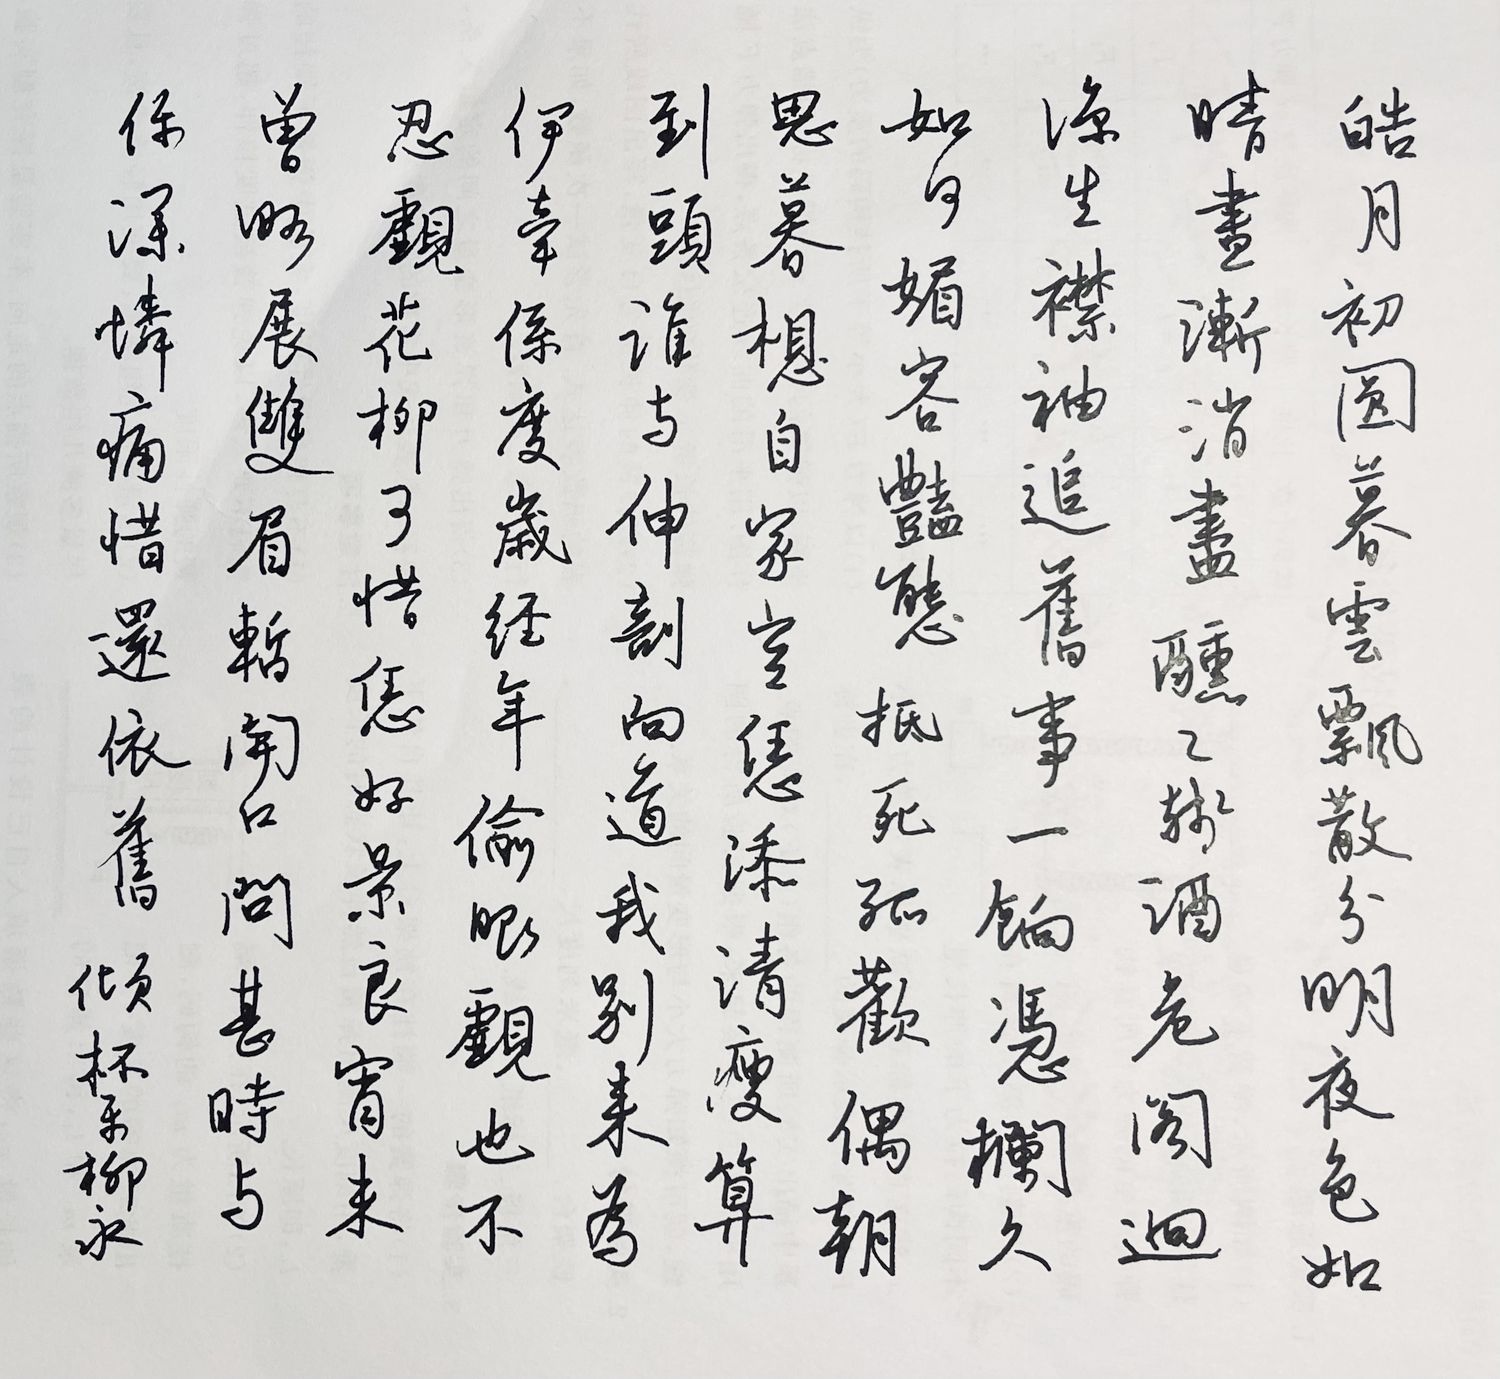 皓月初圆暮雲飄散分明夜色如
晴晝漸消盡醺〻殘酒危阁迥
涼生襟袖追舊事一餉憑欄久
如何媚容豔態抵死孤歡偶朝
思暮想自家空恁添清瘦算
到頭誰与伸剖向道我别来為
伊牽係度歲经年偷眼覰也不
忍覰花柳可惜恁好景良宵未
曾略展雙眉暫開口問甚時与
你深憐痛惜還依舊 傾杯樂柳永